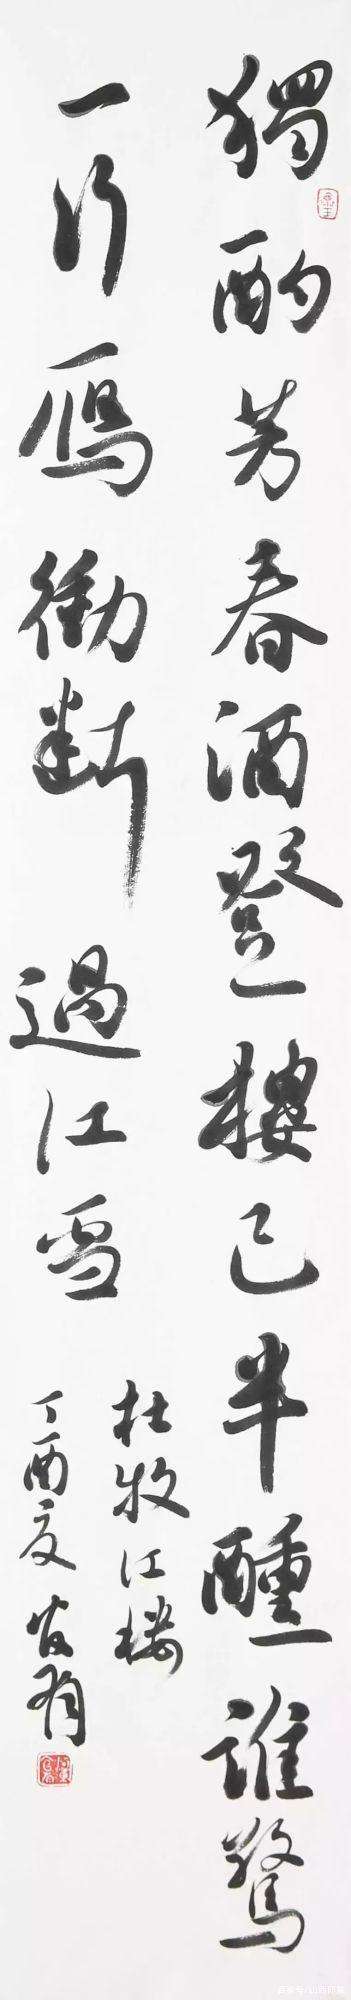 獨酌芳春酒登樓已半醺誰驚
一行鴈衝斷過江雪
杜牧江樓
丁酉夏